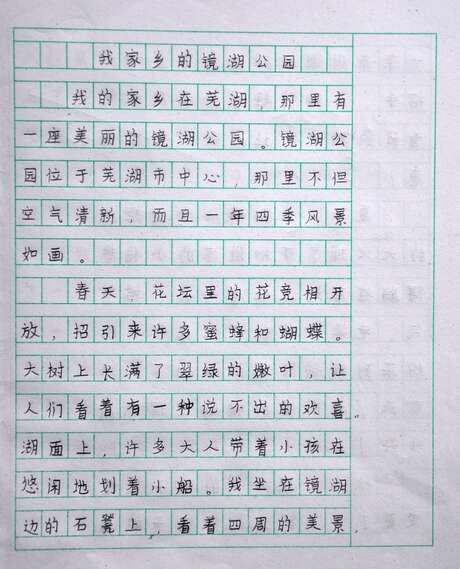 我家乡的镜湖公园
我的家乡在芜湖,那里有
一座美丽的镜湖公园。镜湖公
园位于芜湖市中心,那里不但
空气清新,而且一年四季风景
如画。
春天 花坛里的花竞相开
放,招引来许多蜜蜂和蝴蝶。
大树上长满了翠绿的嫩叶,让
人们看着有一种说不出的欢喜。
湖面上,许多大人带着小孩在
悠闲地划着小船。我坐在镜湖
边的石凳上,看着四周的美景,